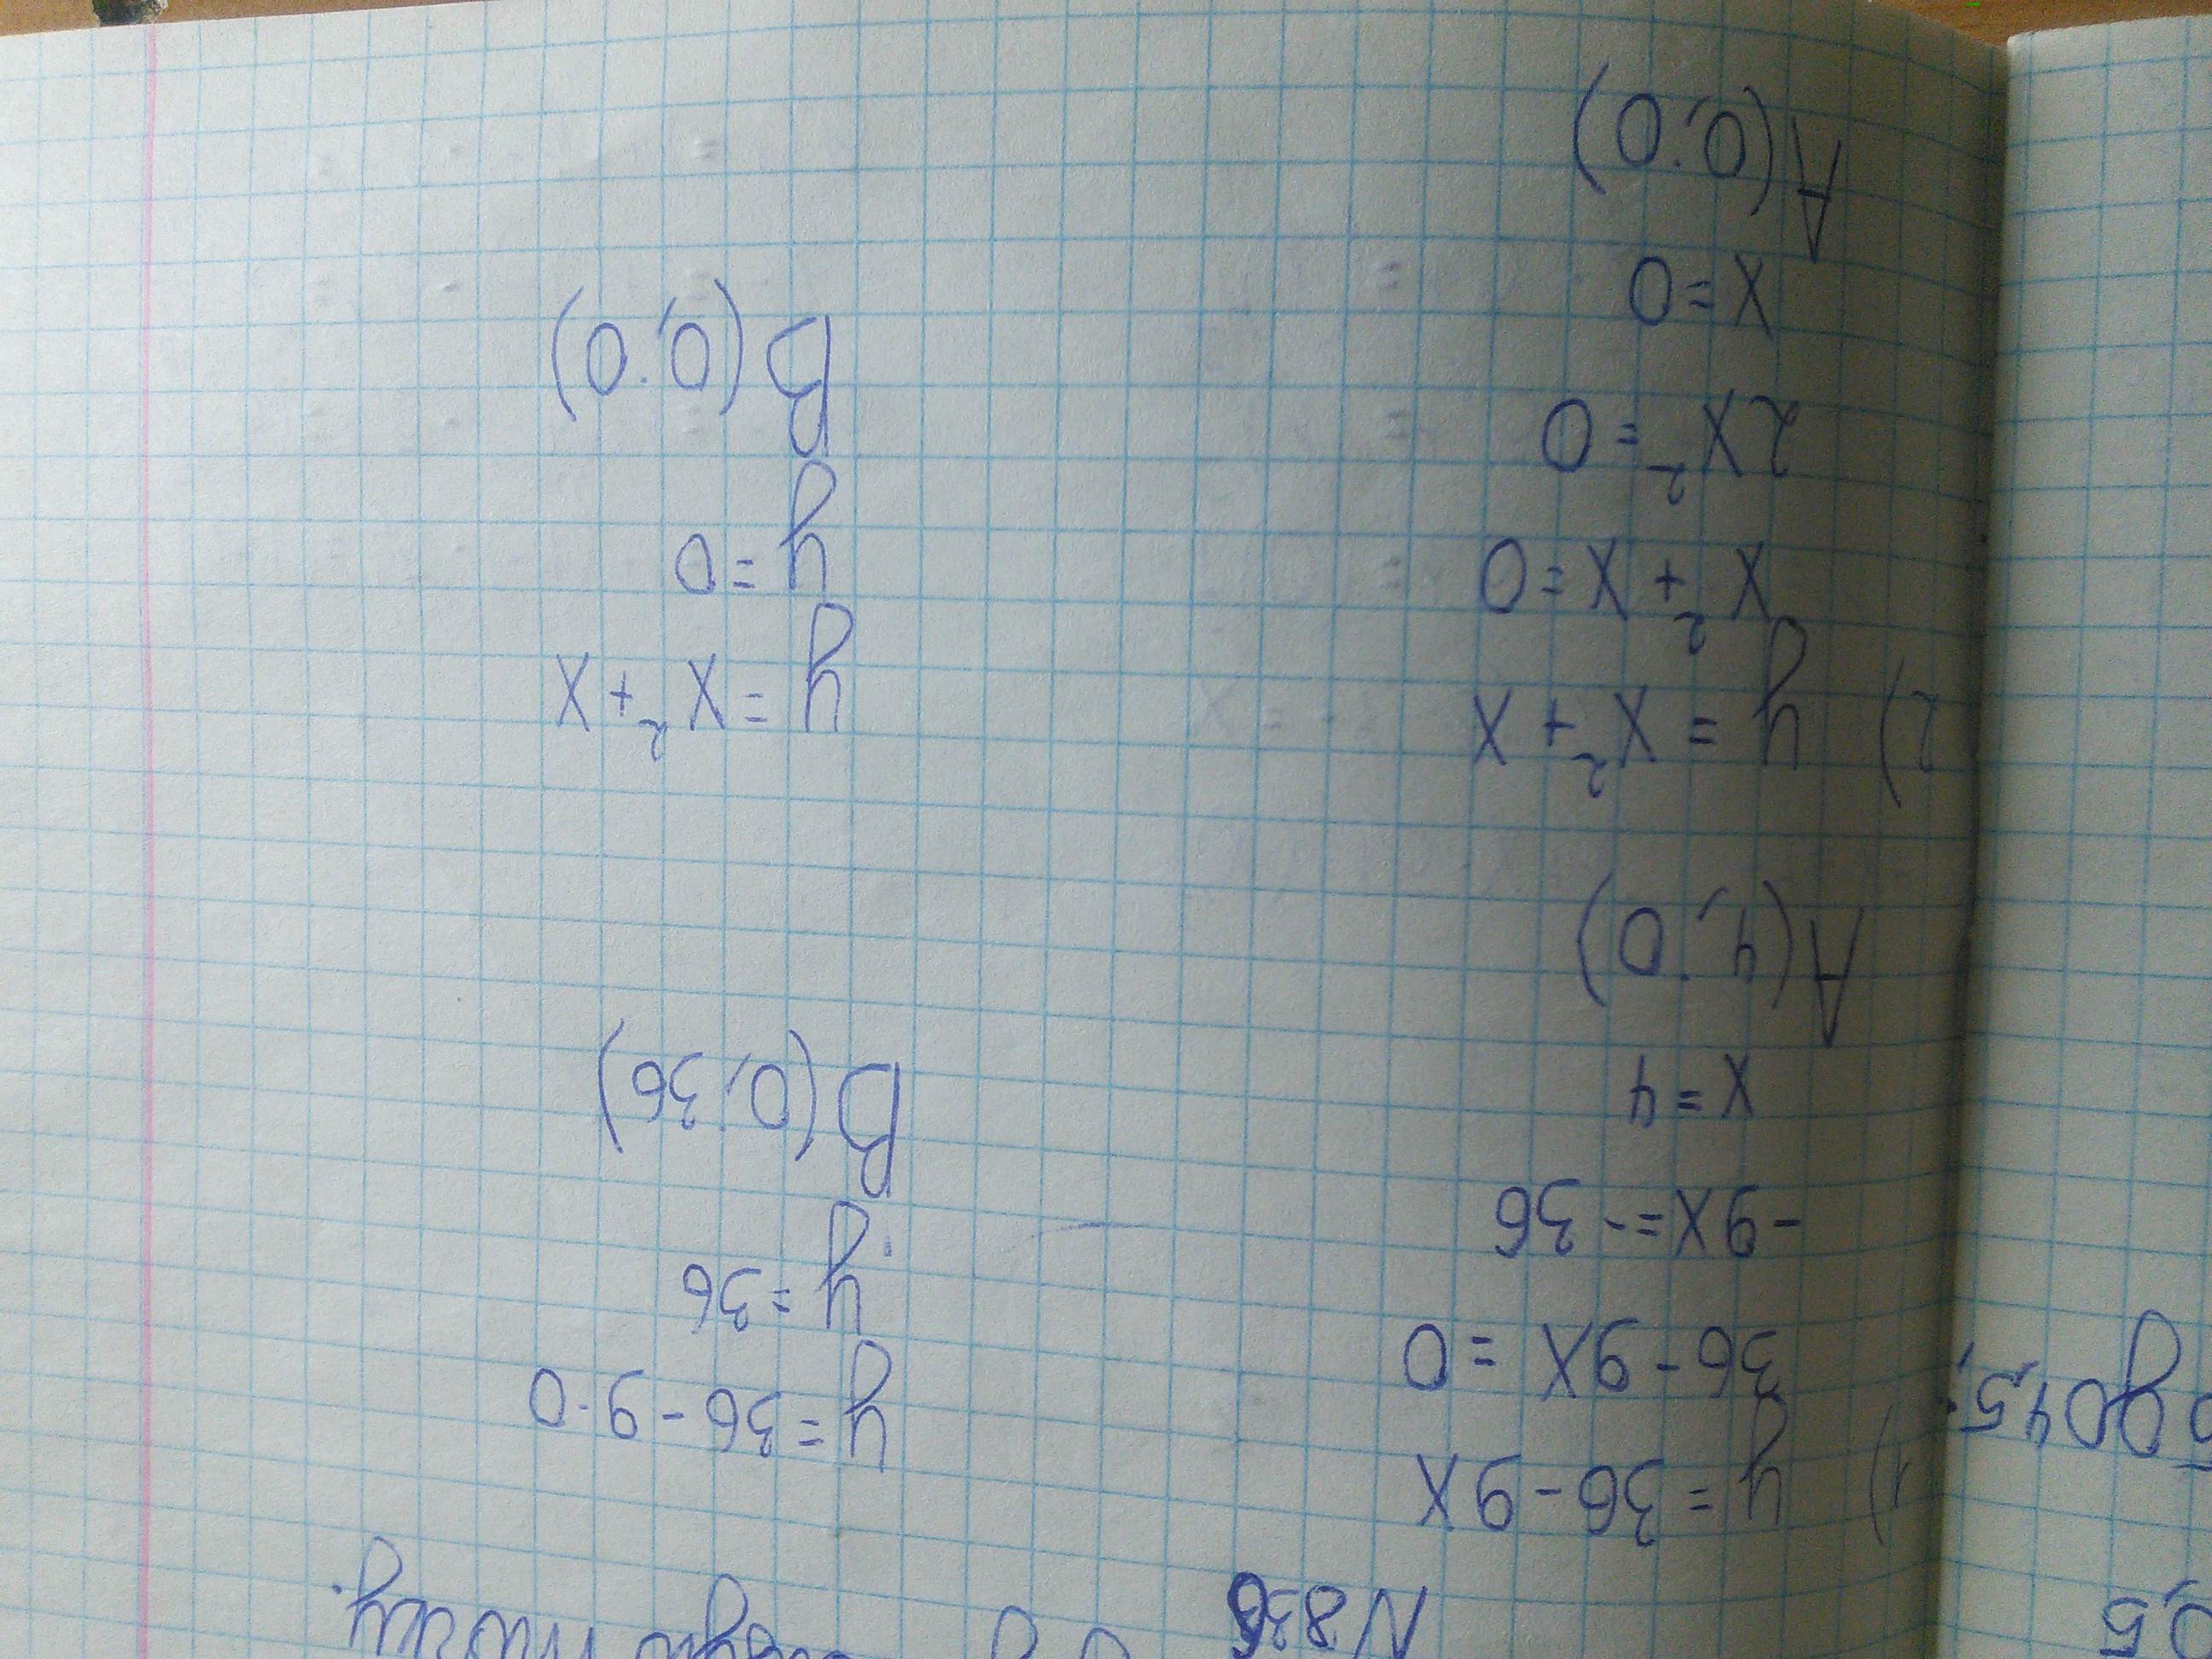 N 836
1) y = 36 - 9x
36 - 9x = 0
-9x = -36
x = 4
A(4; 0)
y = 36 - 9·0
y = 36
B(0; 36)
2) y = x² + x
x² + x = 0
2x² = 0
x = 0
A(0; 0)
y = x² + x
y = 0
B(0; 0)
до 4,5;